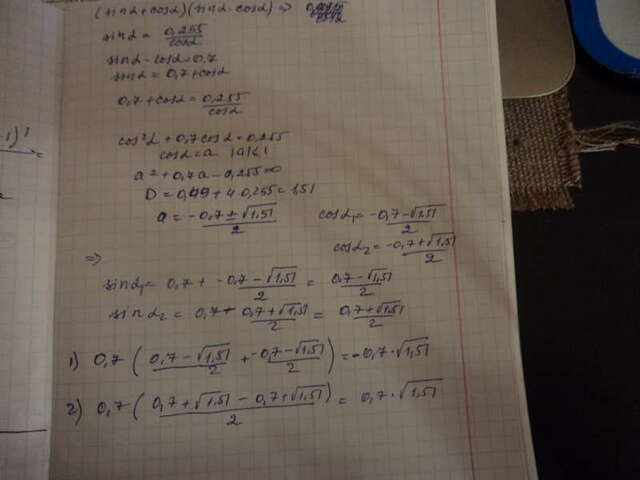 (sinα+cosα)(sinα-cosα) =>
sinα = 0,255/cosα
sinα-cosα=0,7
sinα=0,7+cosα
0,7+cosα=0,255/cosα
cos²α+0,7cosα=0,255
cosα=a |a|≤1
a²+0,7a-0,255=0
D=0,49+4·0,255=1,51
a=(-0,7±√1,51)/2
cosα₁=(-0,7-√1,51)/2
cosα₂=(-0,7+√1,51)/2
=>
sinα₁=0,7+(-0,7-√1,51)/2=(0,7-√1,51)/2
sinα₂=0,7+(0,7+√1,51)/2=(0,7+√1,51)/2
1) 0,7((0,7-√1,51)/2+(-0,7-√1,51)/2)=-0,7·√1,51
2) 0,7((0,7+√1,51-0,7+√1,51)/2)=0,7·√1,51